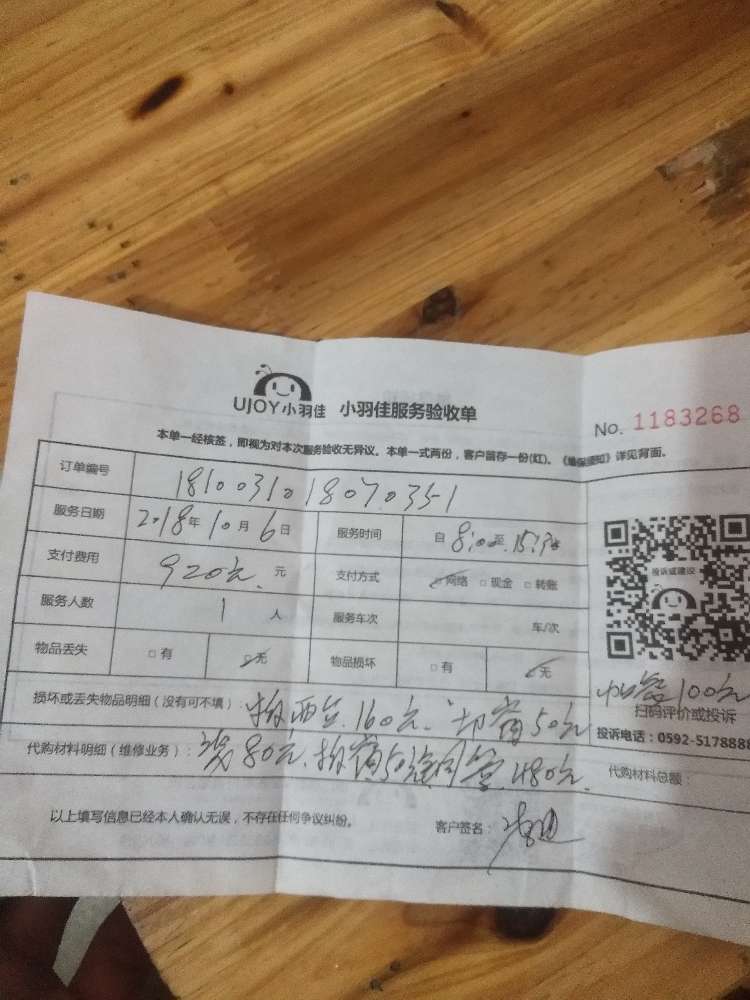 UJOY小羽佳 小羽佳服务验收单
No. 1183268
本单一经核签，即视为对本次服务验收无异议。本单一式两份，客户留存一份(红)。《维保须知》详见背面。
订单编号 181003101807035-1
服务日期 2018年10月6日 服务时间 自8:00至
支付费用 920元 元 支付方式 ☑网络 □现金 □转账
服务人数 1人 服务车次 车/次
物品丢失 □有 ☑无 物品损坏 □有 ☑无
投诉或建议
100元
扫码评价或投诉
投诉电话：0592-5178888
损坏或丢失物品明细（没有可不填）： 拆两台160元 50元
代购材料明细（维修业务）： 装80元 50 铜管480元 代购材料总额：
以上填写信息已经本人确认无误，不存在任何争议纠纷。 客户签名：